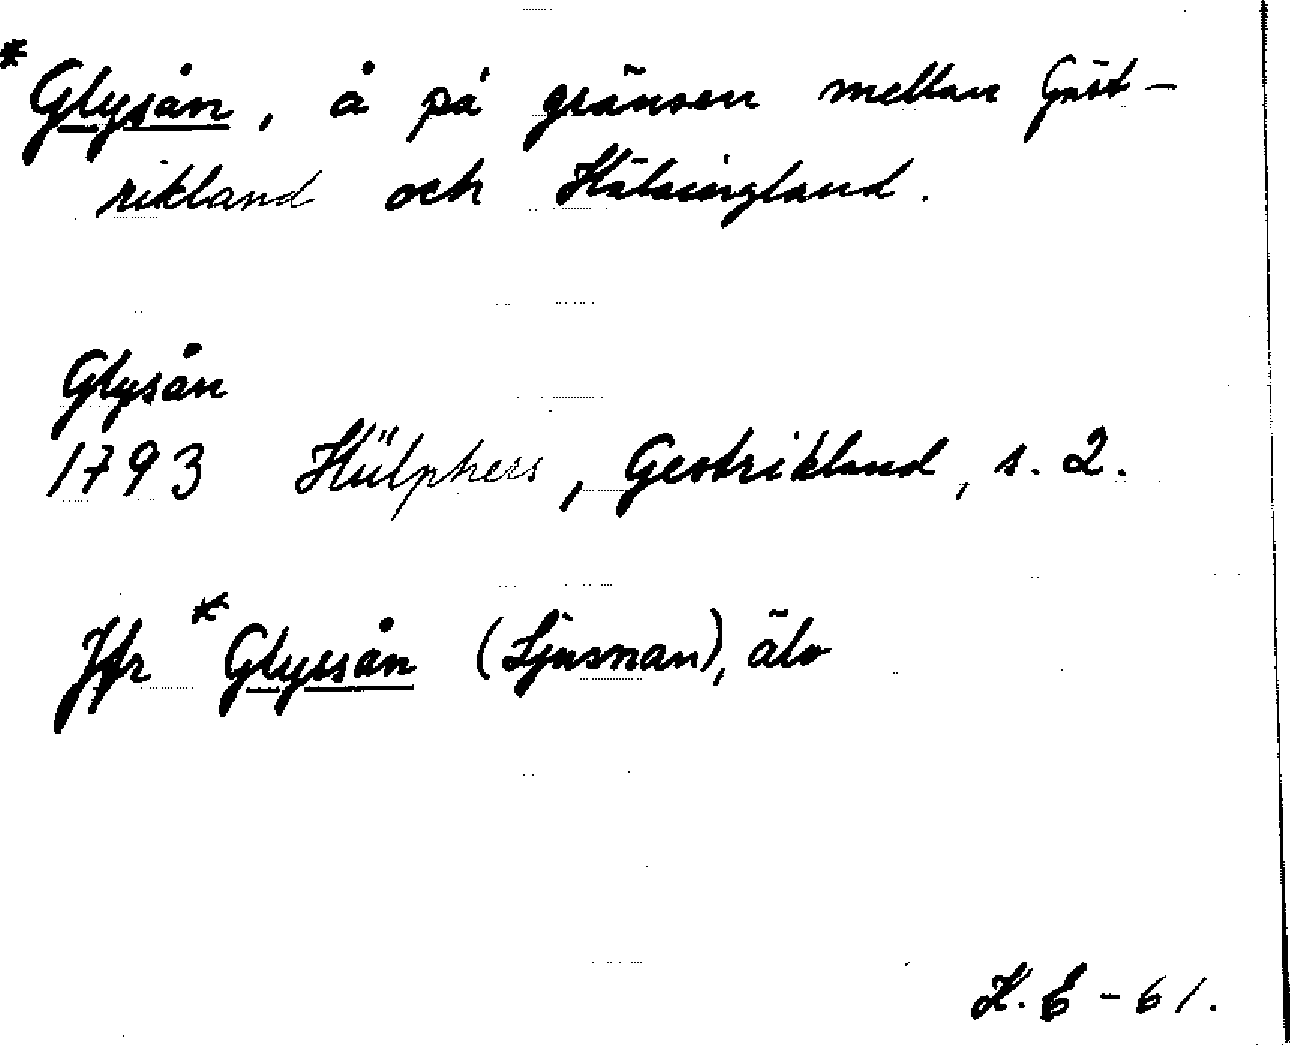 *Glysån, å på gränsen mellan Gäst-
rikland och Hälsingland.
Glysån
1793 Hülphers, Gestrikland, s. 2.
Jfr *Glyssån (Ljusnan), älv
K. E - 61.